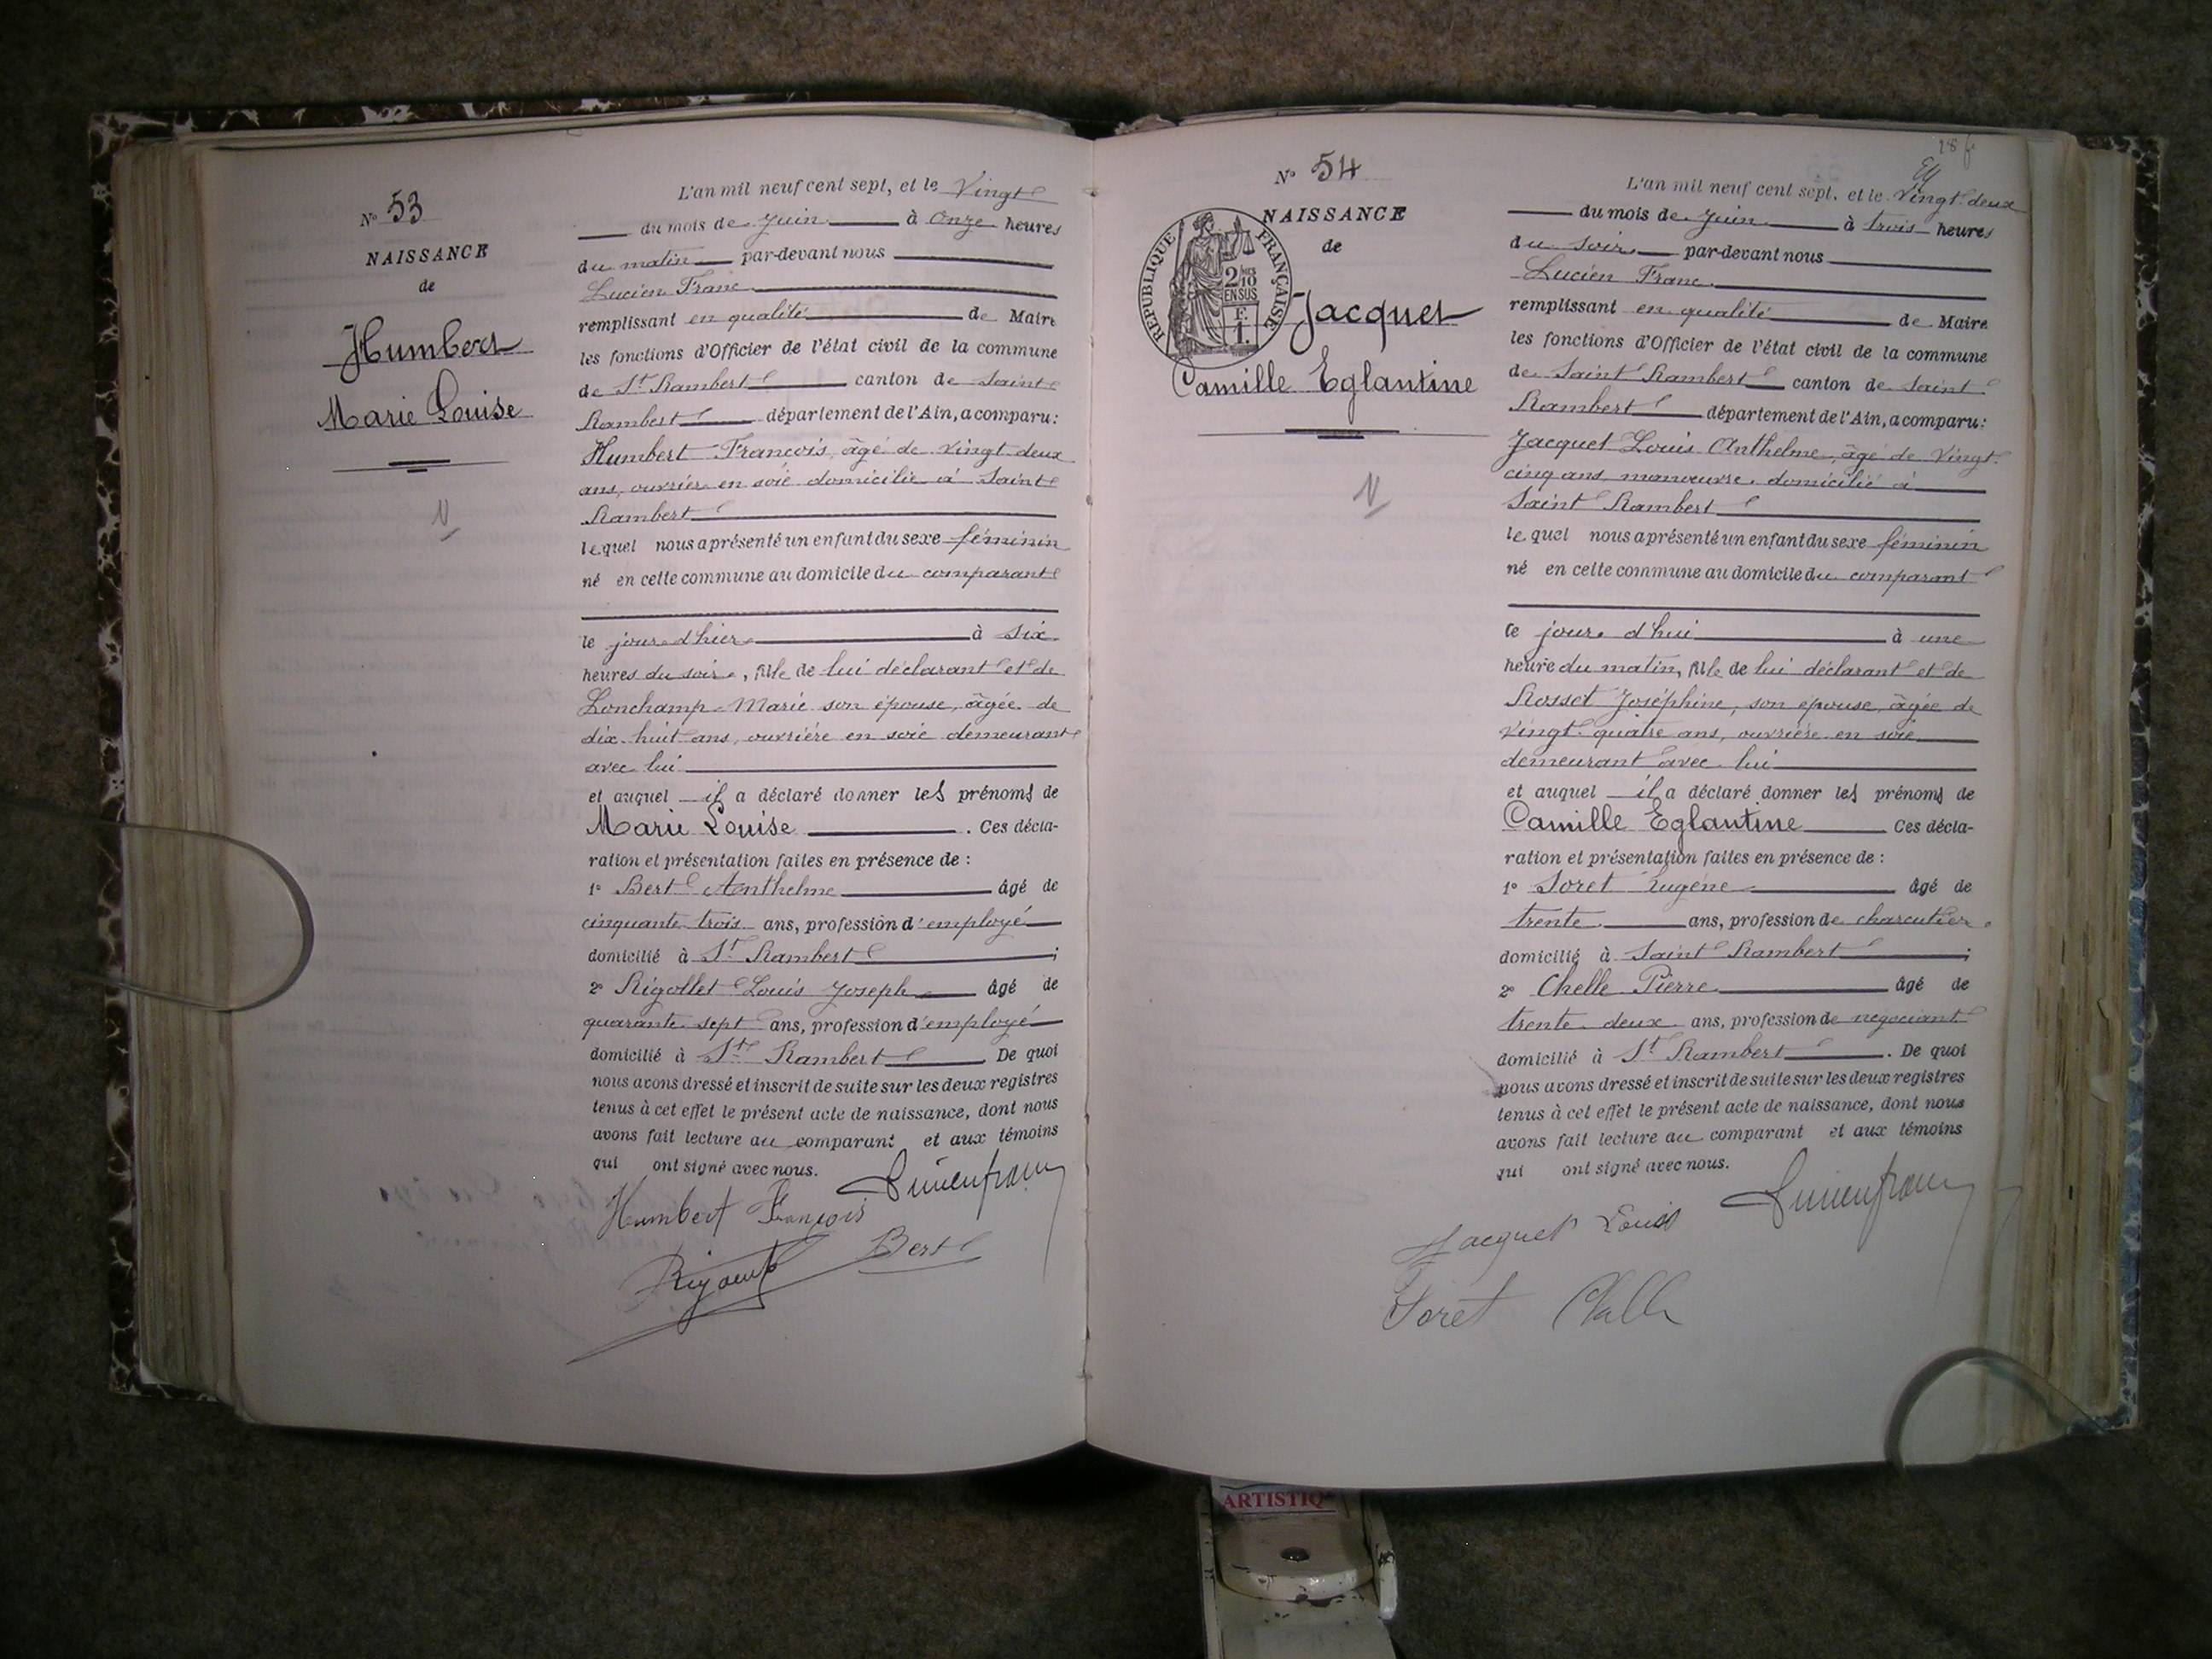 N° 53
NAISSANCE
de
Humbert
Marie Louise
N
L'an mil neuf cent sept, et le Vingt
du mois de Juin à Onze heures
du matin par-devant nous
Lucien Franc
remplissant en qualité de Maire
les fonctions d'Officier de l'état civil de la commune
de St Rambert canton de Saint
Rambert département de l'Ain, a comparu:
Humbert François, âgé de vingt deux
ans, ouvrier en soie domicilié à Saint
Rambert
lequel nous a présenté un enfant du sexe féminin
né en cette commune au domicile du comparant
le jour d'hier à six
heures du soir, fille de lui déclarant et de
Lonchamp Marie son épouse, âgée de
dix huit ans, ouvrière en soie demeurant
avec lui
et auquel il a déclaré donner les prénoms de
Marie Louise. Ces décla-
ration et présentation faites en présence de :
1° Bert Anthelme âgé de
cinquante trois ans, profession d'employé
domicilié à St Rambert ;
2° Rigollet Louis Joseph âgé de
quarante sept ans, profession d'employé
domicilié à St Rambert De quoi
nous avons dressé et inscrit de suite sur les deux registres
tenus à cet effet le présent acte de naissance, dont nous
avons fait lecture au comparant et aux témoins
qui ont signé avec nous.
Lucien Franc
Humbert François
Bert
N° 54
NAISSANCE
de
RÉPUBLIQUE FRANÇAISE
2/10
EN SUS
F.
1.
Jacquet
Camille Eglantine
N
L'an mil neuf cent sept, et le Vingt deux
du mois de Juin à trois heures
du soir par-devant nous
Lucien Franc
remplissant en qualité de Maire
les fonctions d'Officier de l'état civil de la commune
de Saint Rambert canton de Saint
Rambert département de l'Ain, a comparu:
Jacquet Louis Anthelme, âgé de vingt
cinq ans, manœuvre, domicilié à
Saint Rambert
lequel nous a présenté un enfant du sexe féminin
né en cette commune au domicile du comparant
ce jour d'hui à une
heure du matin, fille de lui déclarant et de
Rosset Joséphine, son épouse, âgée de
vingt quatre ans, ouvrière en soie
demeurant avec lui
et auquel il a déclaré donner les prénoms de
Camille Eglantine Ces décla-
ration et présentation faites en présence de :
1° Soret Eugène âgé de
trente ans, profession de charcutier
domicilié à Saint Rambert ;
2° Chelle Pierre âgé de
trente deux ans, profession de négociant
domicilié à St Rambert. De quoi
nous avons dressé et inscrit de suite sur les deux registres
tenus à cet effet le présent acte de naissance, dont nous
avons fait lecture au comparant et aux témoins
qui ont signé avec nous.
Lucien Franc
Jacquet Louis
Soret Chelle
ARTISTIQ